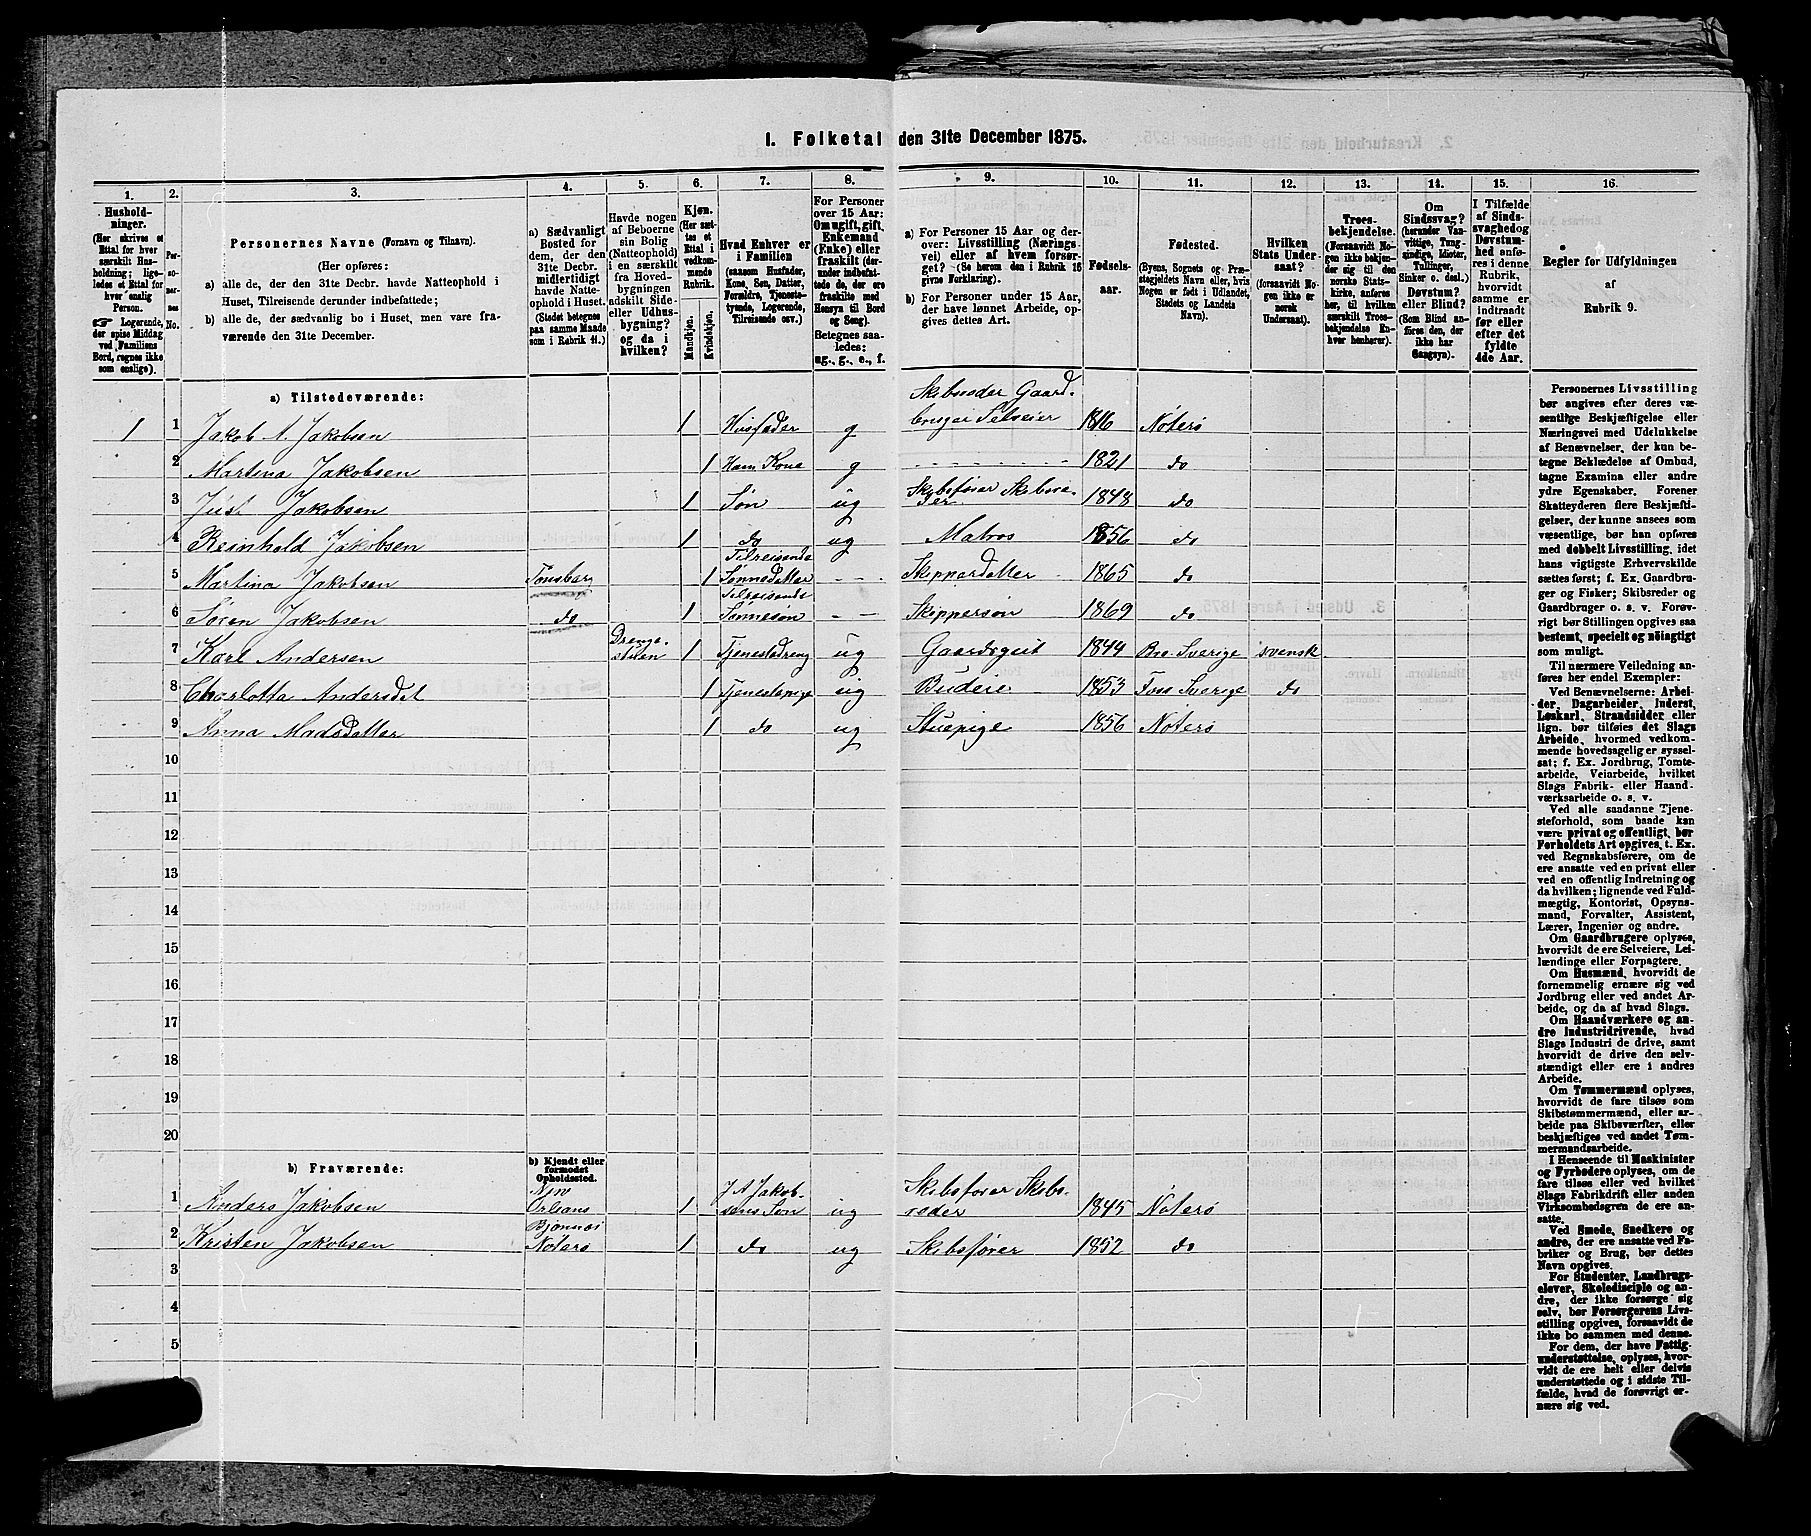 1. Folketal den 31te December 1875.
1.
Hushold-
ninger.
(Her skrives et
Ettal for hver
særskilt Hus-
holdning; lige-
ledes et Ettal
for hver enslig
Person.
☞ Logerende,
der spise Middag
ved Familiens
Bord, regnes ikke
som enslige).
2.
Per-
so-
ner-
nes
No.
3.
Personernes Navne (Fornavn og Tilnavn).
(Her opføres:
a) alle de, der den 31te Decbr. havde Natteophold i
Huset, Tilreisende derunder indbefattede;
b) alle de, der sædvanlig bo i Huset, men vare fra-
værende den 31te December.
4.
a) Sædvanligt
Bosted for
dem, der den
31te Decbr.
midlertidigt
havde Natte-
ophold i Huset.
(Stedet betegnes
paa samme Maade
som i Rubrik 11.)
5.
Havde nogen
af Beboerne
sin Bolig
(Natteophold)
i en særskilt
fra Hoved-
bygningen
adskilt Side-
eller Udhus-
bygning?
og da i
hvilken?
6.
Kjøn.
(Her sæt-
tes et
Ettal i
vedkom-
mende
Rubrik.
Mandkjøn.
Kvindekjøn.
7.
Hvad Enhver er
i Familien
(saasom Husfader,
Kone, Søn, Datter,
Forældre, Tjeneste-
tyende, Logerende,
Tilreisende osv.)
8.
For Personer
over 15 Aar:
Om ugift, gift,
Enkemand
(Enke) eller
fraskilt (der-
under indbefat-
tede de, der ere
fraskilte med
Hensyn til Bord
og Seng).
Betegnes saa-
ledes:
ug., g., e., f.
9.
a) For Personer 15 Aar og der-
over: Livsstilling (Nærings-
vei) eller af hvem forsør-
get? (Se herom den i Rubrik 16
givne Forklaring).
b) For Personer under 15 Aar,
der have lønnet Arbeide, op-
gives dettes Art.
10.
Fødsels-
aar.
11.
Fødested.
(Byens, Sognets og Præ-
stegjeldets Navn eller, hvis
Nogen er født i Udlandet,
Stedets og Landets
Navn).
12.
Hvilken
Stats Under-
saat?
(forsaavidt No-
gen ikke er
norsk
Undersaat).
13.
Troes-
bekjendelse.
(Forsaavidt No-
gen ikke bekjen-
der sig til den
norske Stats-
kirke, anføres
her, til hvilken
særskilt Troes-
bekjendelse En-
hver henhører).
14.
Om
Sindssvag?
(herunder Van-
vittige, Tung-
sindige, Idioter,
Tullinger,
Sinker o. desl.)
Døvstum?
eller Blind?
(Som Blind an-
føres den, der
ikke har
Gangsyn).
15.
I Tilfælde
af Sinds-
svaghed og
Døvstum-
hed anfø-
res i denne
Rubrik,
hvorvidt
samme er
indtraadt
før eller
efter det
fyldte
4de Aar.
16.
Regler for Udfyldningen
af
Rubrik 9.
a) Tilstedeværende:
1 1 Jakob A. Jakobsen 1 Husfader g Skibsreder Gaard-
bruger Selveier 1816 Nøterø
2 Martina Jakobsen 1 Hans Kone g 1821 do
3 Just Jakobsen 1 Søn ug Skibsfører Skibsre-
der 1848 do
4 Reinhold Jakobsen 1 do ug Matros 1856 do
5 Martina Jakobsen Tønsberg 1 Tilreisende
Sønnedatter - - Skipperdatter 1865 do
6 Søren Jakobsen do 1 Tilreisende
Sønnesøn - - Skippersøn 1869 do
7 Karl Andersen Drenge-
stuen 1 Tjenestedreng ug Gaardsgut 1844 Bro Sverige svensk
8 Charlotta Andersdat 1 Tjenestepige ug Budeie 1853 Foss Sverige do
9 Anna Madsdatter 1 do ug Stuepige 1856 Nøterø
10
11
12
13
14
15
16
17
18
19
20
b) Fraværende:
b) Kjendt eller
formodet
Opholdssted.
1 Anders Jakobsen New
Orleans 1 J A Jakob-
sens Søn ug Skibsfører Skibs-
reder 1845 Nøterø
2 Kristen Jakobsen Bjønnes
Nøterø 1 do ug Skibsfører 1852 do
3
4
5
Personernes Livsstilling
bør angives efter deres væ-
sentlige Beskjæftigelse eller
Næringsvei med Udelukkelse
af Benævnelser, der kun be-
tegne Beklædelse af Ombud,
tagne Examina eller andre
ydre Egenskaber. Forener
Skatteyderen flere Beskjæfti-
gelser, der kunne ansees som
væsentlige, bør han opføres
med dobbelt Livsstilling, idet
hans vigtigste Erhvervskilde
sættes først; f. Ex. Gaardbru-
ger og Fisker; Skibsreder og
Gaardbruger o. s. v. Forøv-
rigt bør Stillingen opgives saa
bestemt, specielt og nøiagtigt
som muligt.
Til nærmere Veiledning an-
føres her endel Exempler:
Ved Benævnelserne: Arbei-
der, Dagarbeider, Inderst,
Løskarl, Strandsidder eller
lign. bør tilføies det Slags
Arbeide, hvormed vedkom-
mende hovedsagelig er syssel-
sat; f. Ex. Jordbrug, Tomte-
arbeide, Veiarbeide, hvilket
Slags Fabrik- eller Haand-
værksarbeide o. s. v.
Ved alle saadanne Tjene-
steforhold, som baade kan
være privat og offentligt, bør
Forholdets Art opgives, t. Ex.
ved Regnskabsførere, om de
ere ansatte ved en privat eller
ved en offentlig Indretning og
da hvilken; lignende ved Fuld-
mægtig, Kontorist, Opsyns-
mand, Forvalter, Assistent,
Lærer, Ingeniør og andre.
Om Gaardbrugere oplyses,
hvorvidt de ere Selveiere, Lei-
lændinge eller Forpagtere.
Om Husmænd, hvorvidt de
fornemmelig ernære sig ved
Jordbrug eller ved andet Ar-
beide, og da af hvad Slags.
Om Haandværkere og an-
dre Industridrivende, hvad
Slags Industri de drive, samt
hvorvidt de drive den selv-
stændigt eller ere i andres
Arbeide.
Om Tømmermænd oplyses,
hvorvidt de fare tilsøs som
Skibstømmermænd, eller ar-
beide paa Skibsværfter, eller
beskjæftiges ved andet Tøm-
mermandsarbeide.
I Henseende til Maskinister
og Fyrbødere oplyses, om de
fare tilsøs eller ved hvilket
Slags Fabrikdrift eller anden
Virksomhedsgren de ere an-
satte.
Ved Smede, Snedkere og
andre, der ere ansatte ved Fa-
briker og Brug, bør dettes
Navn opgives.
For Studenter, Landbrugs-
elever, Skoledisciple og an-
dre, der ikke forsørge sig
selv, bør Forsørgerens Livs-
stilling opgives, forsaavidt de
ikke bo sammen med denne.
For dem, der have Fattig-
understøttelse, oplyses, hvor-
vidt de ere helt eller delvis
understøttede og i sidste Til-
fælde, hvad de forøvrigt er-
nære sig ved.